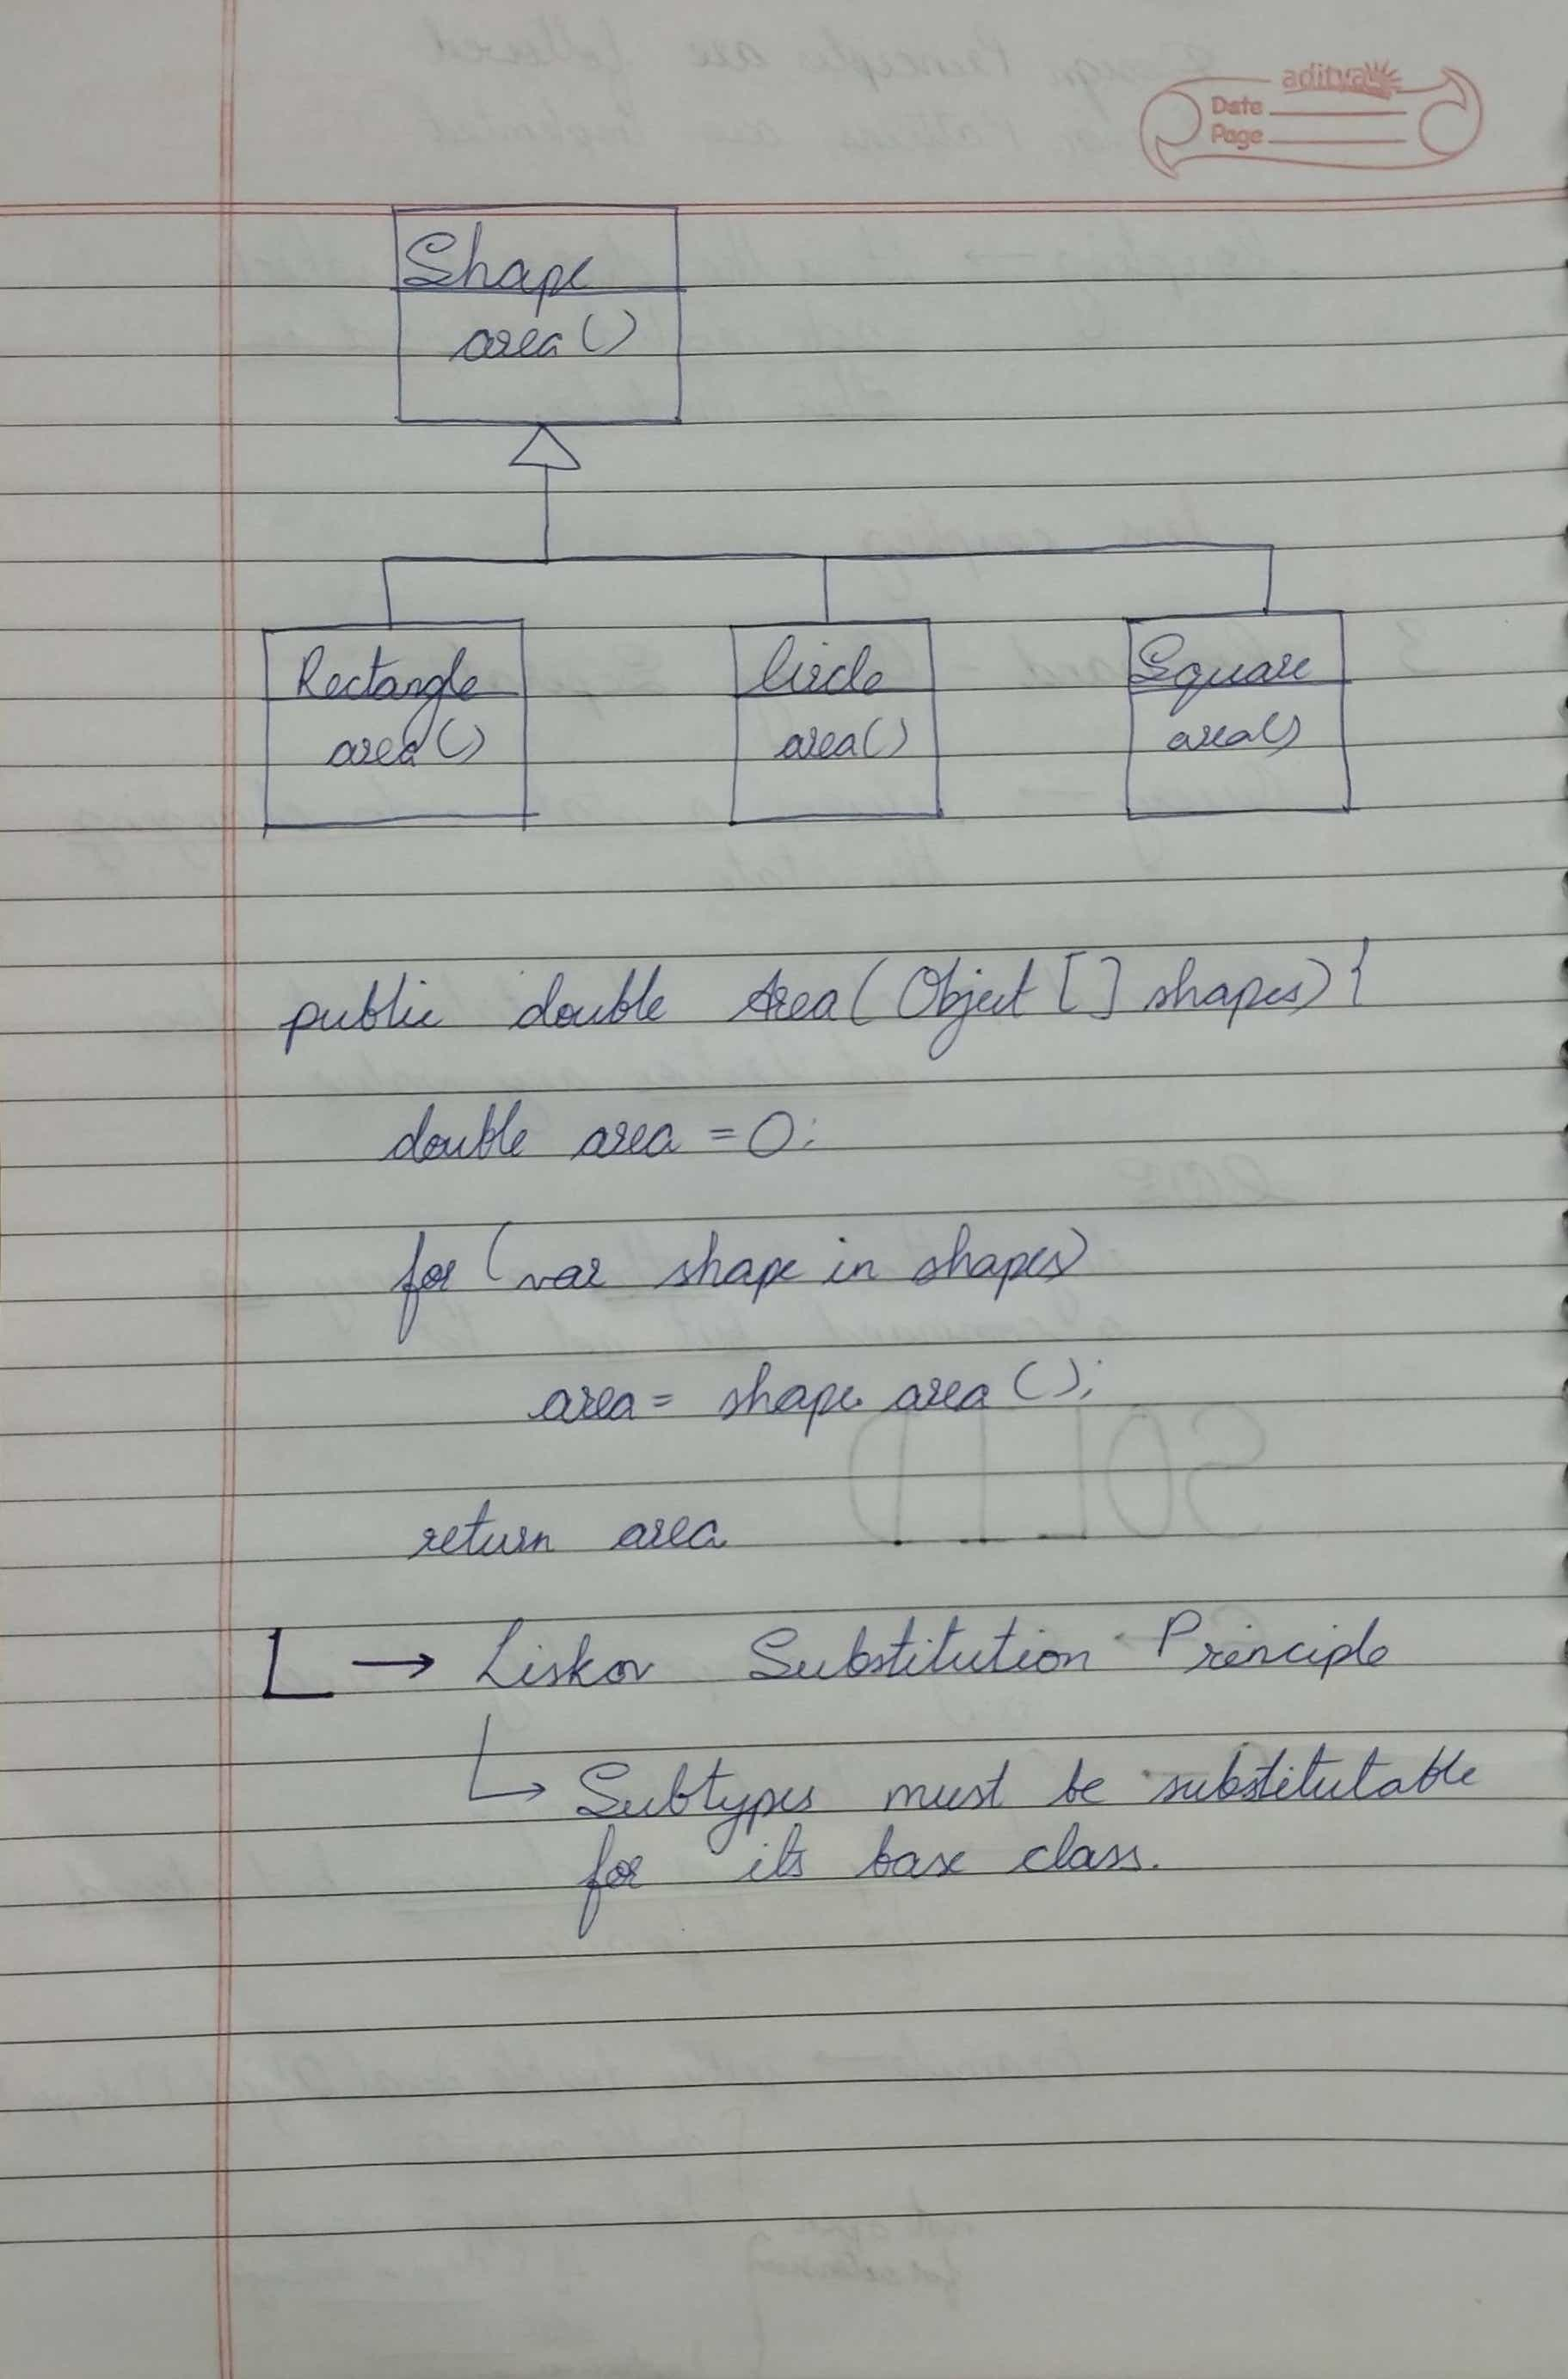 aditya
Date
Page
Shape
area()
Rectangle
area()
Circle
area()
Square
area()
public double Area(Object [] shapes){
double area = 0;
for (var shape in shapes)
area = shape. area ();
return area
L → Liskov Substitution Principle
↳ Subtypes must be substitutable
for its base class.